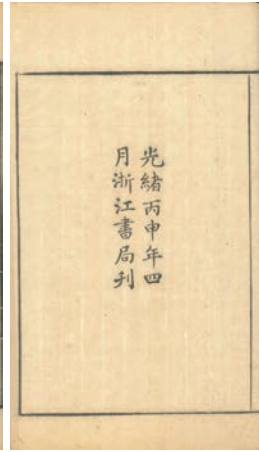 光緒丙申年四
月浙江書局刊